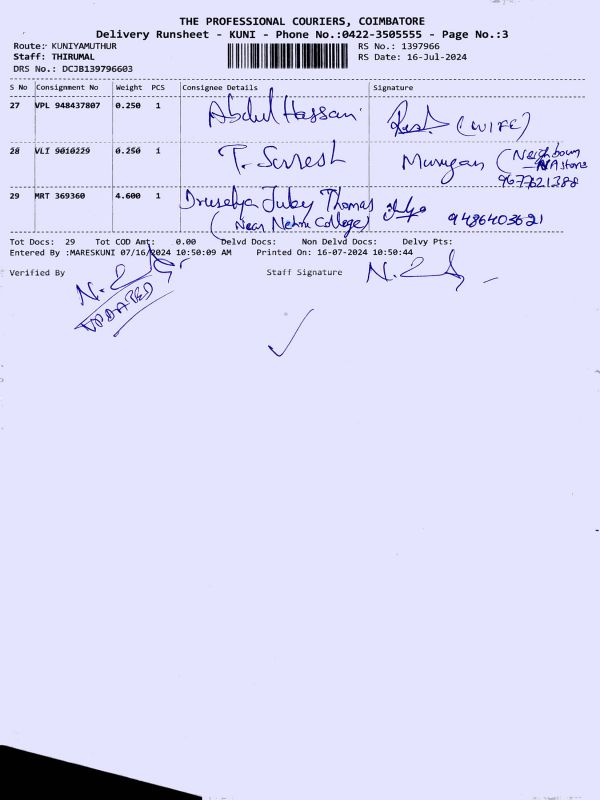 THE PROFESSIONAL COURIERS, COIMBATORE
Delivery Runsheet - KUNI - Phone No.:0422-3505555 - Page No.:3
Route: KUNIYAMUTHUR
RS No.: 1397966
Staff: THIRUMAL
RS Date: 16-Jul-2024
DRS No.: DCJB139796603
S No Consignment No Weight PCS Consignee Details Signature
27 VPL 948437807 0.250 1 Abdul Hassan (WIFE)
28 VLI 9010229 0.250 1 T. Suresh Murugan (Neighbour
9677621388
29 MRT 369360 4.600 1 Juby Thomas 9486403621
(Near Nehru College)
Tot Docs: 29 Tot COD Amt: 0.00 Delvd Docs: Non Delvd Docs: Delvy Pts:
Entered By :MARESKUNI 07/16/2024 10:50:09 AM Printed On: 16-07-2024 10:50:44
Verified By Staff Signature
UPDATED